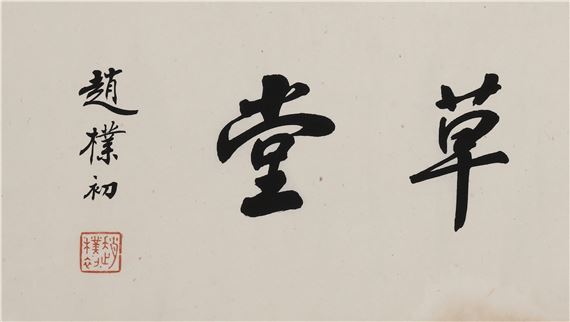 草堂
趙樸初